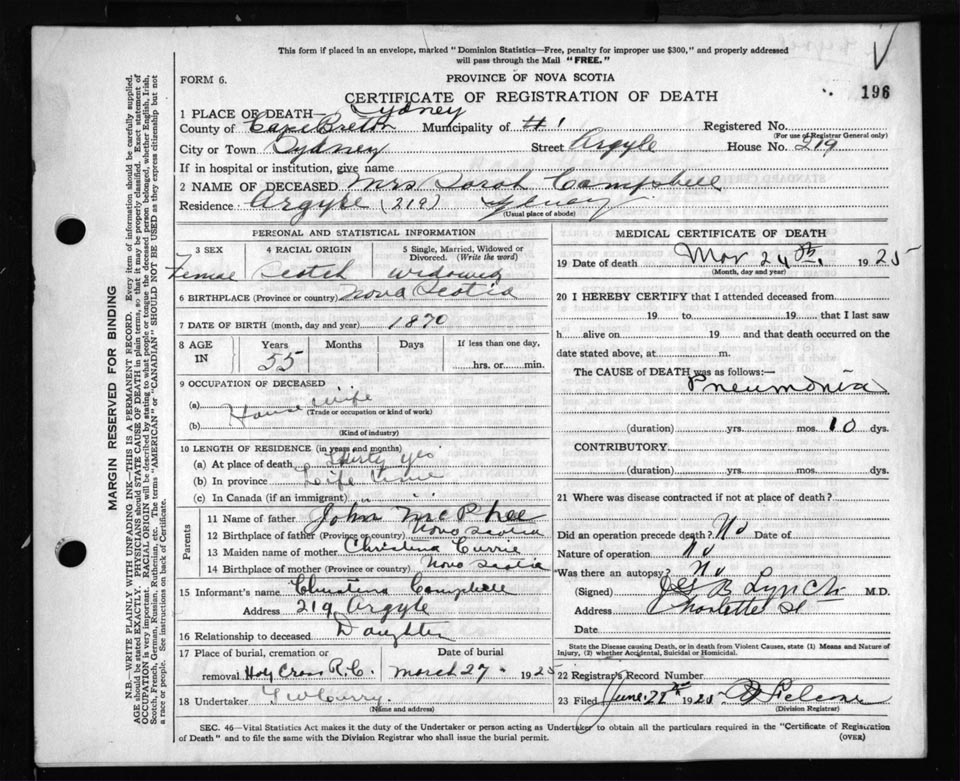 This form if placed in an envelope, marked "Dominion Statistics—Free, penalty for improper use $300," and properly addressed
will pass through the Mail "FREE."
FORM 6.
PROVINCE OF NOVA SCOTIA
196
CERTIFICATE OF REGISTRATION OF DEATH
1 PLACE OF DEATH— Sydney
County of Cape Breton Municipality of Registered No.
(For use of Registrar General only)
City or Town Sydney Street Argyle House No. 219
If in hospital or institution, give name
2 NAME OF DECEASED Mrs Sarah Campbell
Residence Argyle (219) Sydney
(Usual place of abode)
PERSONAL AND STATISTICAL INFORMATION
3 SEX 4 RACIAL ORIGIN 5 Single, Married, Widowed or Divorced. (Write the word)
Female Scotch widowed
6 BIRTHPLACE (Province or country) Nova Scotia
7 DATE OF BIRTH (month, day and year) 1870
8 AGE IN Years Months Days If less than one day,
55 hrs. or min.
9 OCCUPATION OF DECEASED
(a) House wife
(Trade or occupation or kind of work)
(b)
(Kind of industry)
10 LENGTH OF RESIDENCE (in years and months)
(a) At place of death Thirty yrs
(b) In province Life time
(c) In Canada (if an immigrant) " "
Parents
11 Name of father John McPhee
12 Birthplace of father (Province or country) Nova Scotia
13 Maiden name of mother Christina Currie
14 Birthplace of mother (Province or country) Nova Scotia
15 Informant's name Christina Campbell
Address 219 Argyle
16 Relationship to deceased Daughter
17 Place of burial, cremation or Date of burial
removal Holy Cross R.C. March 27 1925
18 Undertaker
(Name and address)
MEDICAL CERTIFICATE OF DEATH
19 Date of death Mar 24th, 1925
(Month, day and year)
20 I HEREBY CERTIFY that I attended deceased from
19 to 19 that I last saw
h alive on 19 and that death occurred on the
date stated above, at m.
The CAUSE of DEATH was as follows:—
Pneumonia
(duration) yrs. mos. 10 dys.
CONTRIBUTORY.
(duration) yrs. mos. dys.
21 Where was disease contracted if not at place of death?
Did an operation precede death? No Date of
Nature of operation No
Was there an autopsy? No
(Signed) B Lynch M.D.
Address Charlotte St
Date
State the Disease causing Death, or in death from Violent Causes, state (1) Means and Nature of
Injury, (2) whether Accidental, Suicidal or Homicidal.
22 Registrar's Record Number
23 Filed June 1925
(Division Registrar)
SEC. 46—Vital Statistics Act makes it the duty of the Undertaker or person acting as Undertaker to obtain all the particulars required in the "Certificate of Registration
of Death" and to file the same with the Division Registrar who shall issue the burial permit.
(OVER)
MARGIN RESERVED FOR BINDING
N.B.—WRITE PLAINLY WITH UNFADING INK—THIS IS A PERMANENT RECORD. Every item of information should be carefully supplied.
AGE should be stated EXACTLY. PHYSICIANS should STATE CAUSE OF DEATH in plain terms, so that it may be properly classified. Exact statement of
OCCUPATION is very important. RACIAL ORIGIN will be described by stating to what people or tongue the deceased person belonged, whether English, Irish,
Scotch, French, German, Russian, Ruthenian, etc. The terms "AMERICAN" or "CANADIAN" SHOULD NOT BE USED as they express citizenship but not
a race or people. See instructions on back of Certificate.